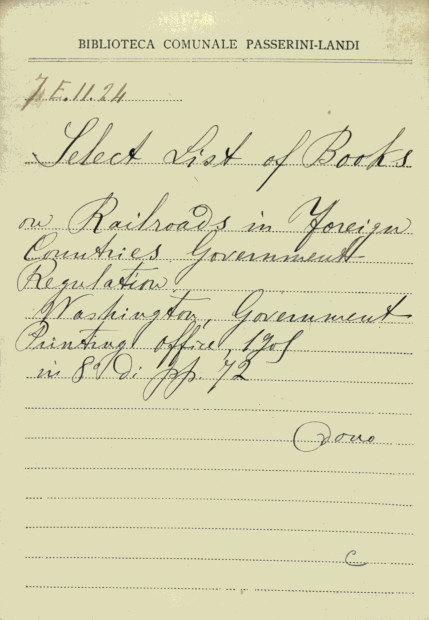 BIBLIOTECA COMUNALE PASSERINI-LANDI
7E.11.24
Select List of Books
on Railroads in Foreign
Countries Government
Regulation.
Washington, Government
Printing Office, 1905
in 8° di pp. 72
Dono
C